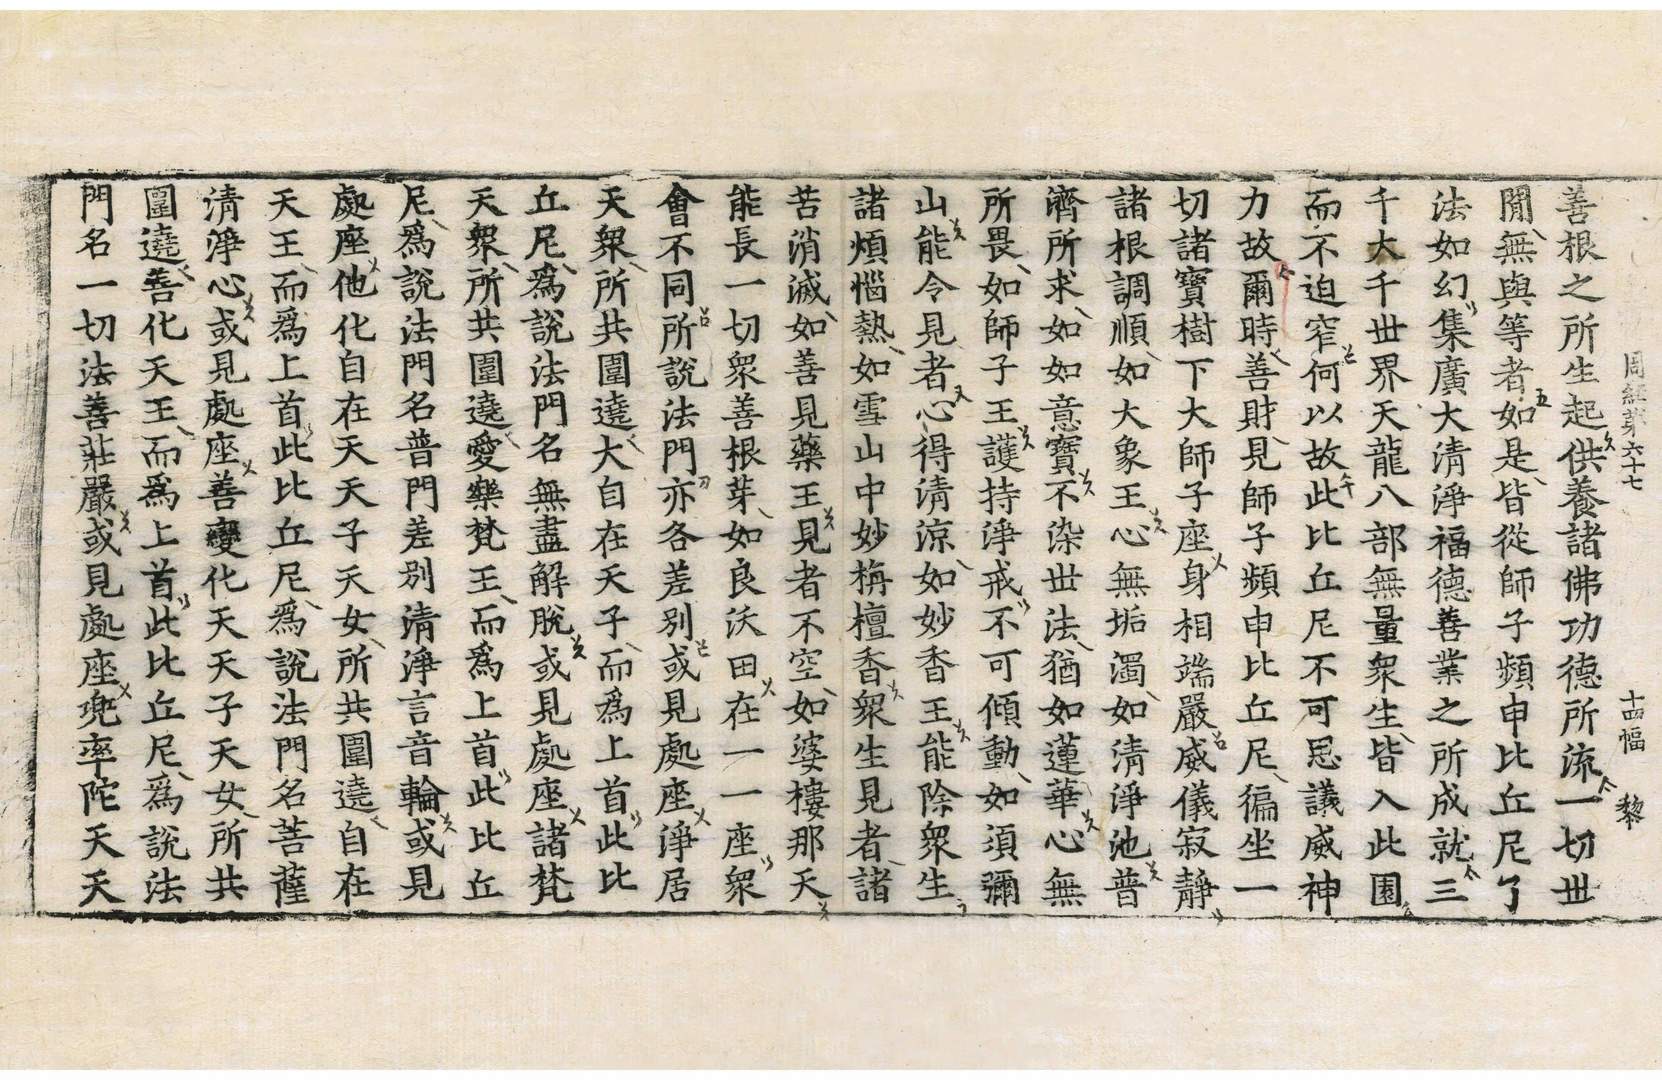 周經第六十七 十四幅 黎
善根之所生起供養諸佛功德所流一切世
閒無與等者如是皆從師子頻申比丘尼了
法如幻集廣大清淨福德善業之所成就三
千大千世界天龍八部無量衆生皆入此園
而不迫窄何以故此比丘尼不可思議威神
力故爾時善財見師子頻申比丘尼徧坐一
切諸寶樹下大師子座身相端嚴威儀寂靜
諸根調順如大象王心無垢濁如清淨池普
濟所求如如意寶不染世法猶如蓮華心無
所畏如師子王護持淨戒不可傾動如須彌
山能令見者心得清涼如妙香王能除衆生
諸煩惱熱如雪山中妙栴檀香衆生見者諸
苦消滅如善見藥王見者不空如婆樓那天
能長一切衆善根芽如良沃田在一一座衆
會不同所說法門亦各差別或見處座淨居
天衆所共圍遶大自在天子而爲上首此比
丘尼爲說法門名無盡解脫或見處座諸梵
天衆所共圍遶愛樂梵王而爲上首此比丘
尼爲說法門名普門差別清淨言音輪或見
處座他化自在天天子天女所共圍遶自在
天王而爲上首此比丘尼爲說法門名菩薩
清淨心或見處座善變化天天子天女所共
圍遶善化天王而爲上首此比丘尼爲說法
門名一切法善莊嚴或見處座兜率陀天天